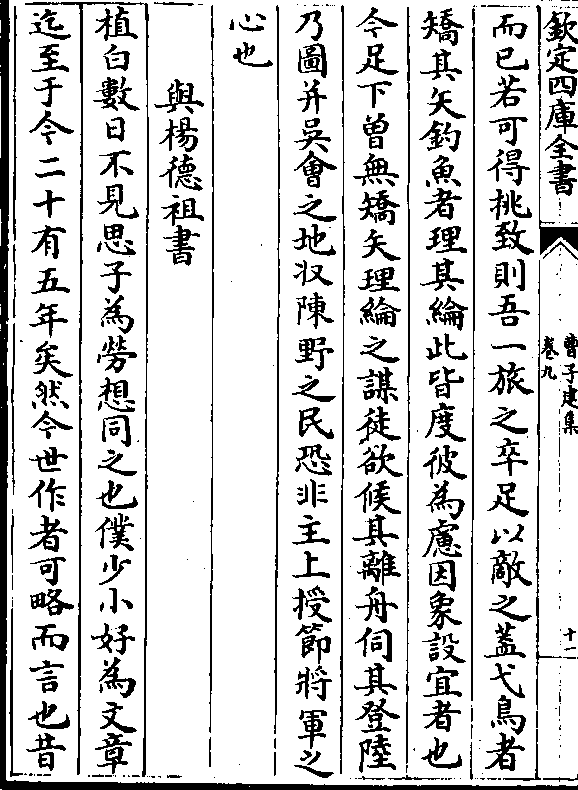 欽定四庫全書
曹子建集
卷九
十一
而已若可得挑致則吾一旅之卒足以敵之蓋弋鳥者
矯其矢釣魚者理其綸此皆度彼為慮因象設宜者也
今足下曽無矯矢理綸之謀徒欲候其離舟伺其登陸
乃圖并吳㑹之地収陳野之民恐非主上授節將軍之
心也
與楊德祖書
植白數日不見思子為勞想同之也僕少小好為文章
迄至于今二十有五年矣然今世作者可略而言也昔